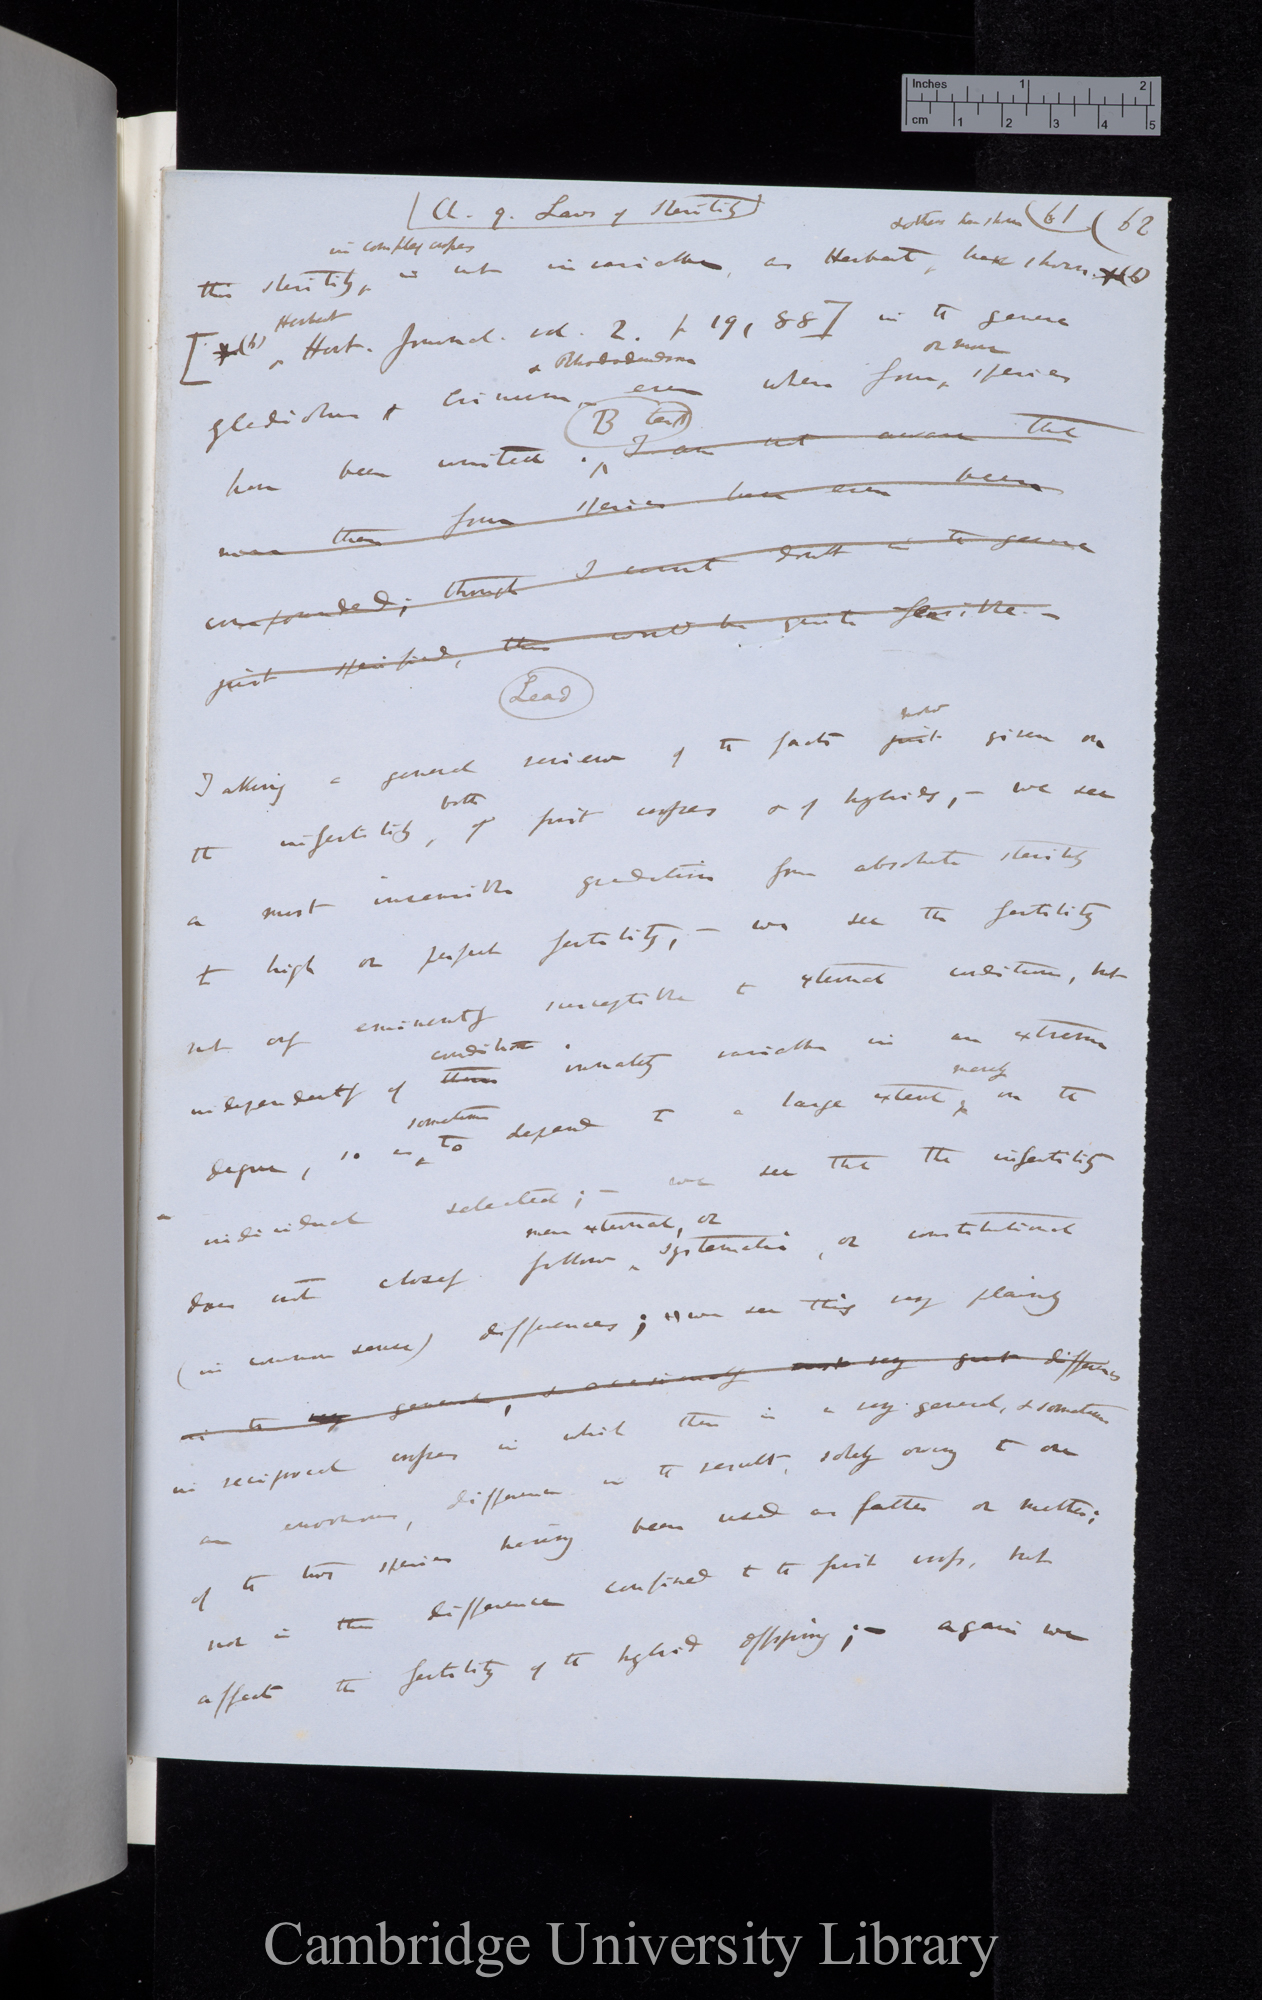 Inches 1 2
cm 1 2 3 4 5
Ch. 9. Laws of Sterility
& others have shewn (61 (62
in complex crosses
this sterility, is not invariable, as Herbert, have shown (b)
Herbert
[(b) Hort. Journal. vol. 2. p 19, 88] in the genera
& Rhododendrons or more
gladiolus & Crinum, even when four, species
B text
have been united. I am not aware that
more than four species have ever been
compounded; though I cannot doubt in the genera
just specified, this would be quite feasible. —
Lead
now
Taking a general review of the facts just given on
both
the infertility, of first crosses & of hybrids, — we see
a most insensible gradation from absolute sterility
to high or perfect fertility, — we see the fertility
not only eminently susceptible to external conditions, but
conditions
independently of them innately variable in an extreme
sometimes merely
degree, so as to depend to a large extent, on the
individual selected; — we see that the infertility
mere external, or
does not closely follow systematic, or constitutional
(in common sense) differences; we see this very plainly
in the very general, & occasionally very great difference
in reciprocal crosses in which there is a very general, & sometimes
an enormous, difference in the result, solely owing to one
of the two species having been used as father or mother;
nor is this difference confined to the first cross, but
affects the fertility of the hybrid offspring; — again we
Cambridge University Library